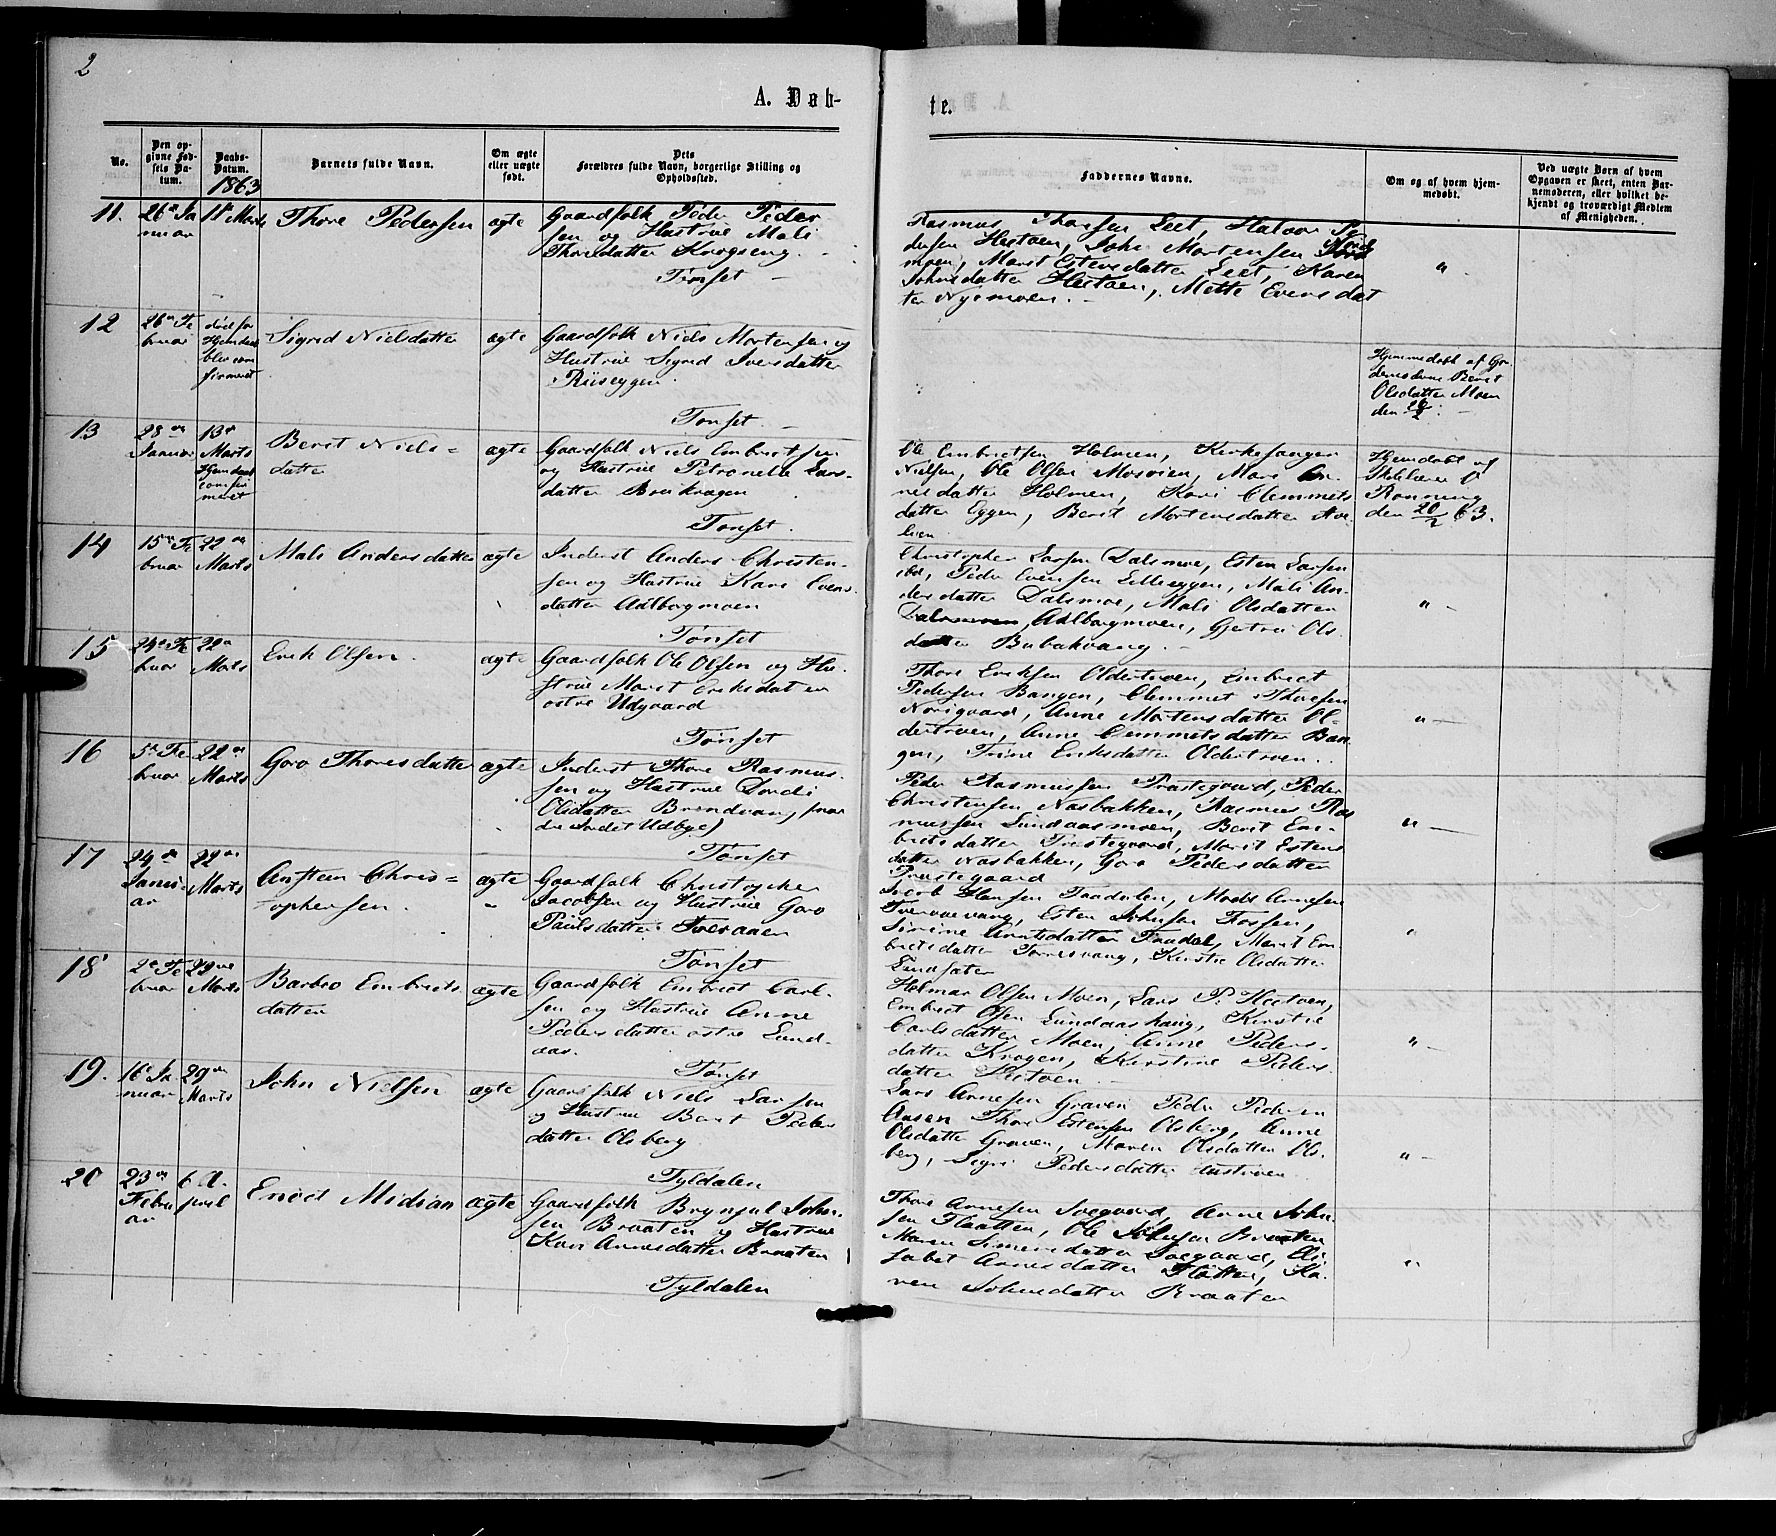 2
A. Døb-
te.
No.
Den op-
givne Fød-
sels Da-
tum.
Daabs-
Datum.
1863
Barnets fulde Navn.
Om ægte
eller uægte
født.
Dets
Forældres fulde Navn, borgerlige Stilling og
Opholdssted.
Faddernes Navne.
Om og af hvem hjem-
medøbt.
Ved uægte Børn af hvem
Opgaven er skeet, enten Bar-
nemoderen, eller hvilket be-
kjendt og troværdigt Medlem
af Menigheden.
11.
26 Ja
nuar
Marts
Thore Pedersen
ægte
Gaardfolk Peder Peder
sen og Hustrue Mali
Thoresdatter Krogseng.
Tønset
Rasmus Thoresen Leet, Halvor Pe
dersen Hestoen, John Mortensen
moen, Marit Estensdatter Leet, Karen
Johnsdatter Hestoen, Mette Evensdat
ter Nysmoen.
"
12
26 Fe
bruar
død før
Hjemdaab
blev con
firmeret
Sigrid Nielsdatter
ægte
Gaardfolk Niels Mortensen og
Hustrue Sigrid Iversdatter
Riiseggen.
Tønset.
Hjemmedøbt af
Berit
Olsdatter Moen
den
13
28
Januar
13
Marts
Hjemdaab
confir
meret
Berit Niels-
datter
ægte
Gaardfolk Niels Embretsen
og Hustrue Petronelle Lars-
datter Brukrogen
Tønset.
Ole Embretsen Holmen, Kirkesanger
Nielsen, Ole Olsen Mosoien,
nesdatter Holmen, Kari Clemmets
datter Eggen, Berit Mortensdatter
Hjemdøbt af
Skolelærer
Rønning
den 20/2 63.
14
15 Fe
bruar
22
Marts
Mali Andersdatter
ægte
Inderst Anders Christen-
sen og Hustrue Kari Evens-
datter Adlbogmoen
Tønset
Christopher Larsen Dalsmoe, Esten Larsen
ibd, Peder Evensen Lilleeggen, Mali An-
dersdatter Dalsmoe, Mali Olsdatter
Adlbogmoen, Gjertrue Ols-
datter Bubakvang.
"
15
24 Fe
bruar
22
Marts
Erik Olsen.
ægte
Gaardfolk Ole Olsen og Hu-
strue Marit Eriksdatter
østre Udgaard
Tønset
Thore Eriksen Oldertrøen, Embret
Pedersen Bangen, Clemmet Thoresen
Norigaard, Anne Mortensdatter Ol-
dertrøen, Anne Clemmetsdatter Ban
gen, Trine Eriksdatter Oldertrøen.
"
16
5 Fe
bruar
22
Marts
Goro Thoresdatter
ægte
Inderst Thore Rasmus-
sen og Hustrue Dordi
Olsdatter Brendvan,
Udbye)
Tønset
Peder Rasmussen Præstegaard, Peder
Christensen Næsbakken, Rasmus Ras
mussen Lundaasmoen, Berit Em-
bretsdatter Præstegaard, Marit Estens
datter Næsbakken, Goro Pedersdatter
Præstegaard
"
17
24
Janu-
ar
22
Marts
Ansteen Chris-
tophersen.
ægte
"
Gaardfolk Christopher
Jacobsen og Hustrue Goro
Paulsdatter Tveraaen
Tønset
Jacob Hansen Taadalen, Mads Arnesen
Esten Johnsen Fossen,
Simine Arntsdatter Taadal, Marit Em
bretsdatter Kirstie Olsdatter
Lundsæter
"
18
2 Fe
bruar
29
Marts
Barbro Embrets
datter
ægte
Gaardfolk Embret Carl-
sen og Hustrue Anne
Pedersdatter østre Lund-
aas.
Tønset
Helmar Olsen Moen, Lars P. Hestoen,
Embret Olsen Lundaashaug, Kirstie
Carlsdatter Moen, Anne Peders-
datter Krogen, Kirstine Peders
datter Hestoen.
"
19.
16 Ja
nuar
29
Marts
John Nielsen
ægte
Gaardfolk Niels Larsen
og Hustrue Berit Peders
datter Olsberg
Tyldalen
Lars Arnesen Graven Peder Pedersen
Aasen Thore Estensen Olsberg, Anne
Olsdatter Graven, Maren Olsdatter Ols-
berg, Sigri Pedersdatter
"
20
23
Febru
ar
6 A-
pril
Enoct Midian
ægte
Gaardfolk Brynjul John-
sen Braaten og Hustrue
Kari Arnesdatter Braaten
Tyldalen
Thore Arnesen Soegaard, Arne John-
sen Flaatten, Ole Johnsen Braaten
Maren Simensdatter Soegaard, Eli
sabet Arnesdatter Flatten, Ka-
ren Johnsdatter Braaten
"